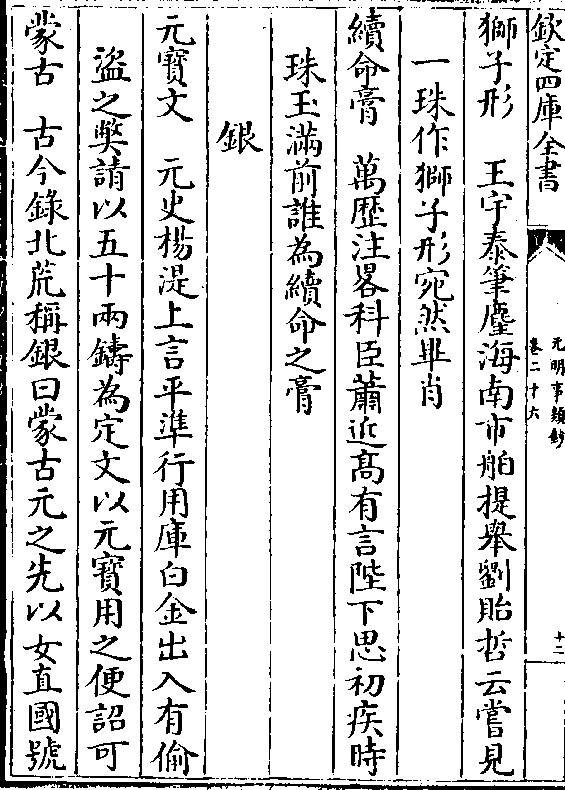 欽定四庫全書
元明事類鈔
卷二十六
十二
獅子形　王宇泰筆麈海南市舶提舉劉貽哲云嘗見
一珠作獅子形宛然畢肖
續命膏　萬歷注畧科臣蕭近髙有言陛下思初疾時
珠玉滿前誰為續命之膏
銀
元寶文　元史楊湜上言平準行用庫白金出入有偷
盜之弊請以五十兩鑄為定文以元寶用之便詔可
蒙古　古今錄北荒稱銀曰蒙古元之先以女直國號